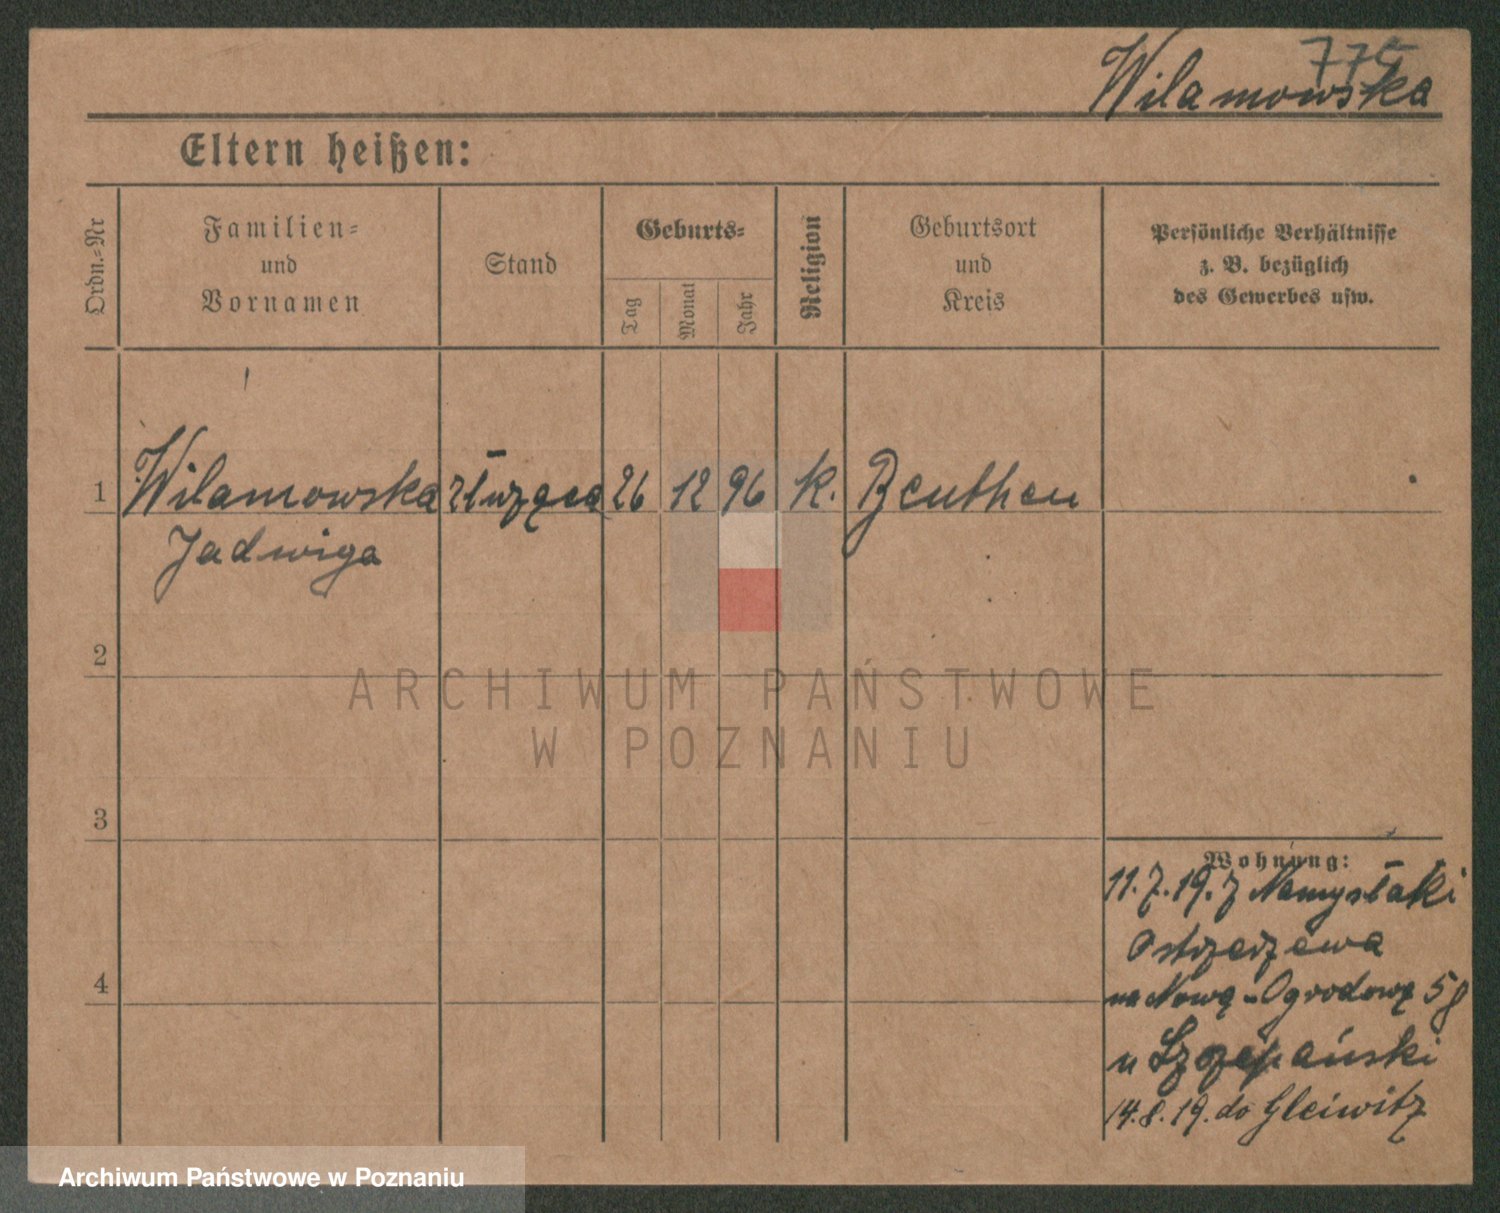 775
Wilamowska
Eltern heißen:
Ordn.-Nr
Familien- und Vornamen
Stand
Geburts-
Tag
Monat
Jahr
Religion
Geburtsort und Kreis
Persönliche Verhältnisse z. B. bezüglich des Gewerbes usw.
1 Wilamowska 26 12 96 k. Beuthen
Jadwiga
2
3
4
Wohnung:
11.7.19. z Namysłaki
Ostrzeszewa
na Nową-Ogrodową 58
u Szczepański
14.8.19. do Gleiwitz
ARCHIWUM PAŃSTWOWE
W POZNANIU
Archiwum Państwowe w Poznaniu